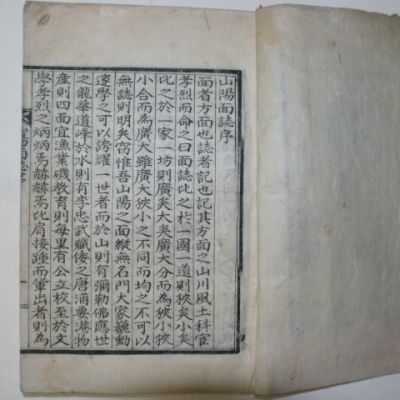 山陽面誌序
面者方面也誌者記也記其方面之山川風土科宦
孝烈而命之曰面誌此之於一國一道則狹矣小矣
比之於一家一坊則廣矣大矣廣大分而為狹小狹
小合而為廣大雖廣大狹小之不同而均之不可以
無誌則明矣窃惟吾山陽之面縱無名門大家巍勳
邃學之可以誇耀一世者而於山則有彌勒佛應世
之龍華道峰於水則有李忠武殲倭之唐浦要港物
產則四面宜漁業磯教育則每里有公立校至於文
學孝烈之炳炳焉赫赫焉比肩接踵而輩出者則為